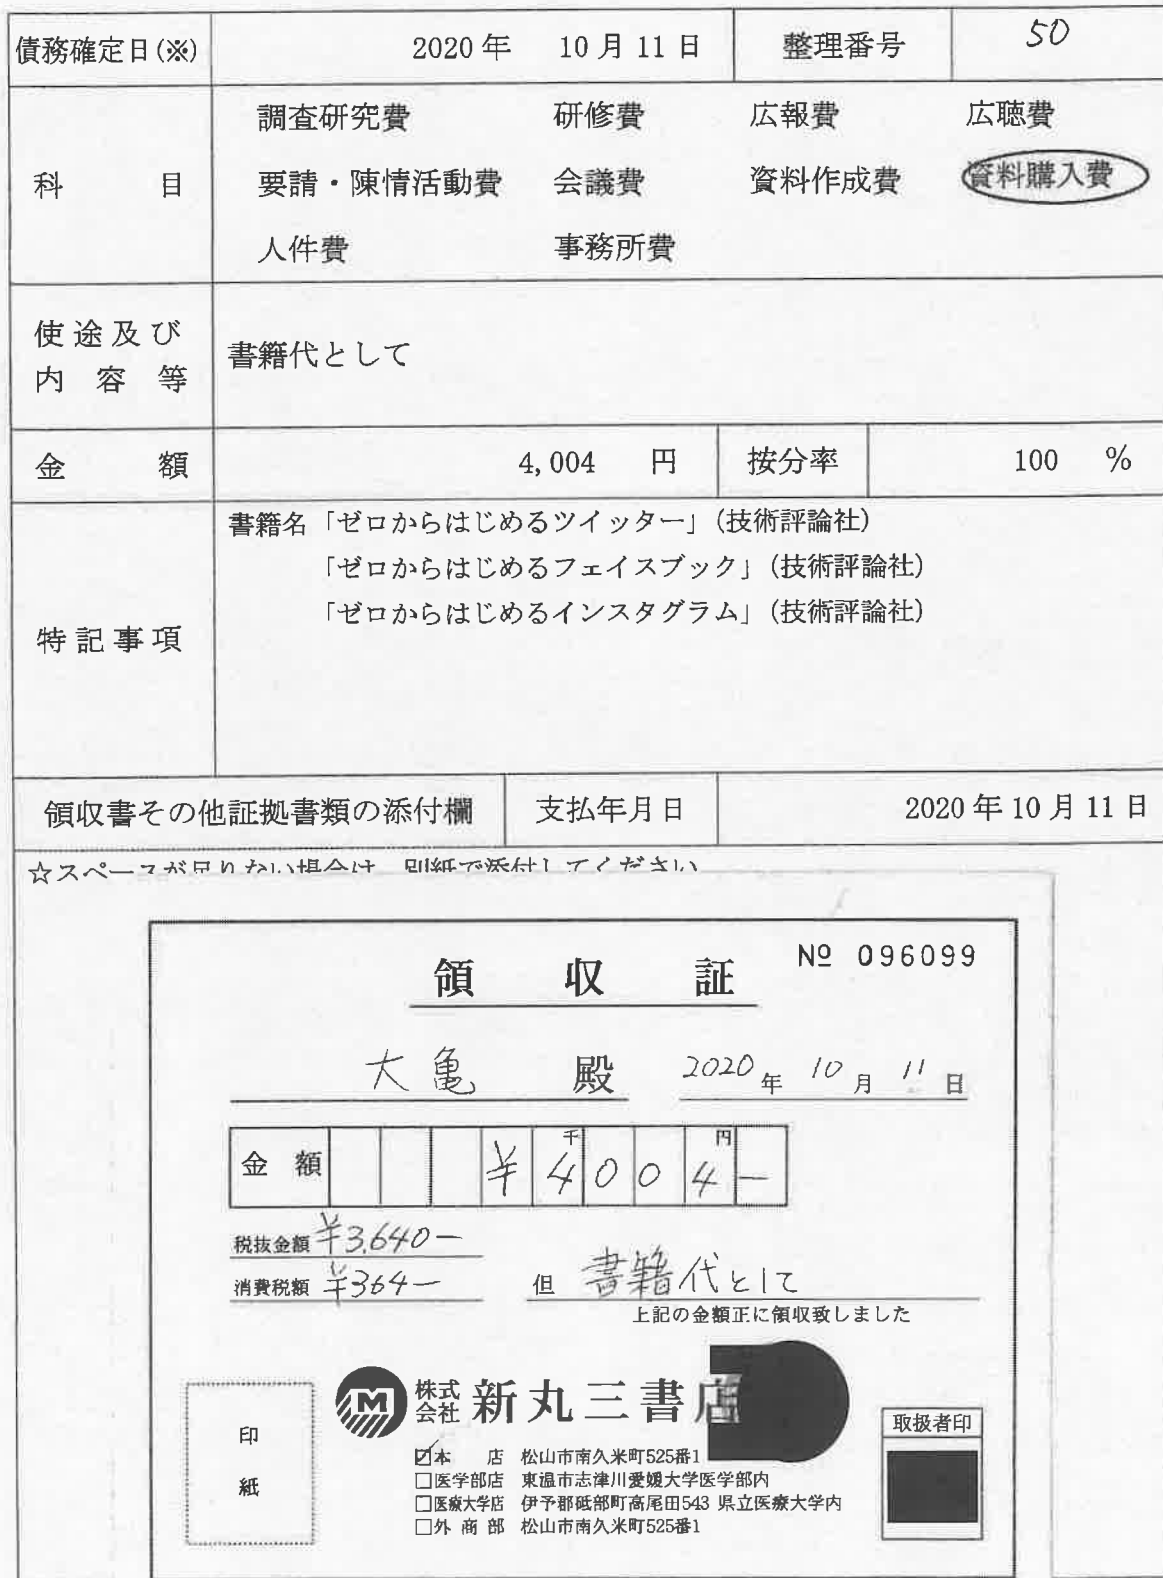 債務確定日(※) 2020年 10月11日 整理番号 50
科 目 調査研究費 研修費 広報費 広聴費
要請・陳情活動費 会議費 資料作成費 資料購入費
人件費 事務所費
使途及び内容等 書籍代として
金 額 4,004 円 按分率 100 %
特記事項 書籍名「ゼロからはじめるツイッター」(技術評論社)
「ゼロからはじめるフェイスブック」(技術評論社)
「ゼロからはじめるインスタグラム」(技術評論社)
領収書その他証拠書類の添付欄 支払年月日 2020年10月11日
☆スペースが足りない場合は、別紙で添付してください
領 収 証 № 096099
大亀 殿 2020年 10月 11日
金 額 千 円 ¥4004-
税抜金額 ¥3,640-
消費税額 ¥364- 但 書籍代として
上記の金額正に領収致しました
印紙
M 株式会社 新丸三書店
☑本 店 松山市南久米町525番1
□医学部店 東温市志津川愛媛大学医学部内
□医療大学店 伊予郡砥部町高尾田543 県立医療大学内
□外商部 松山市南久米町525番1
取扱者印